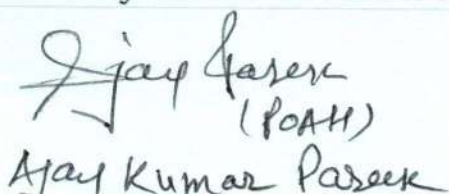 Ajay Pareek
(POAH)
Ajay Kumar Pareek